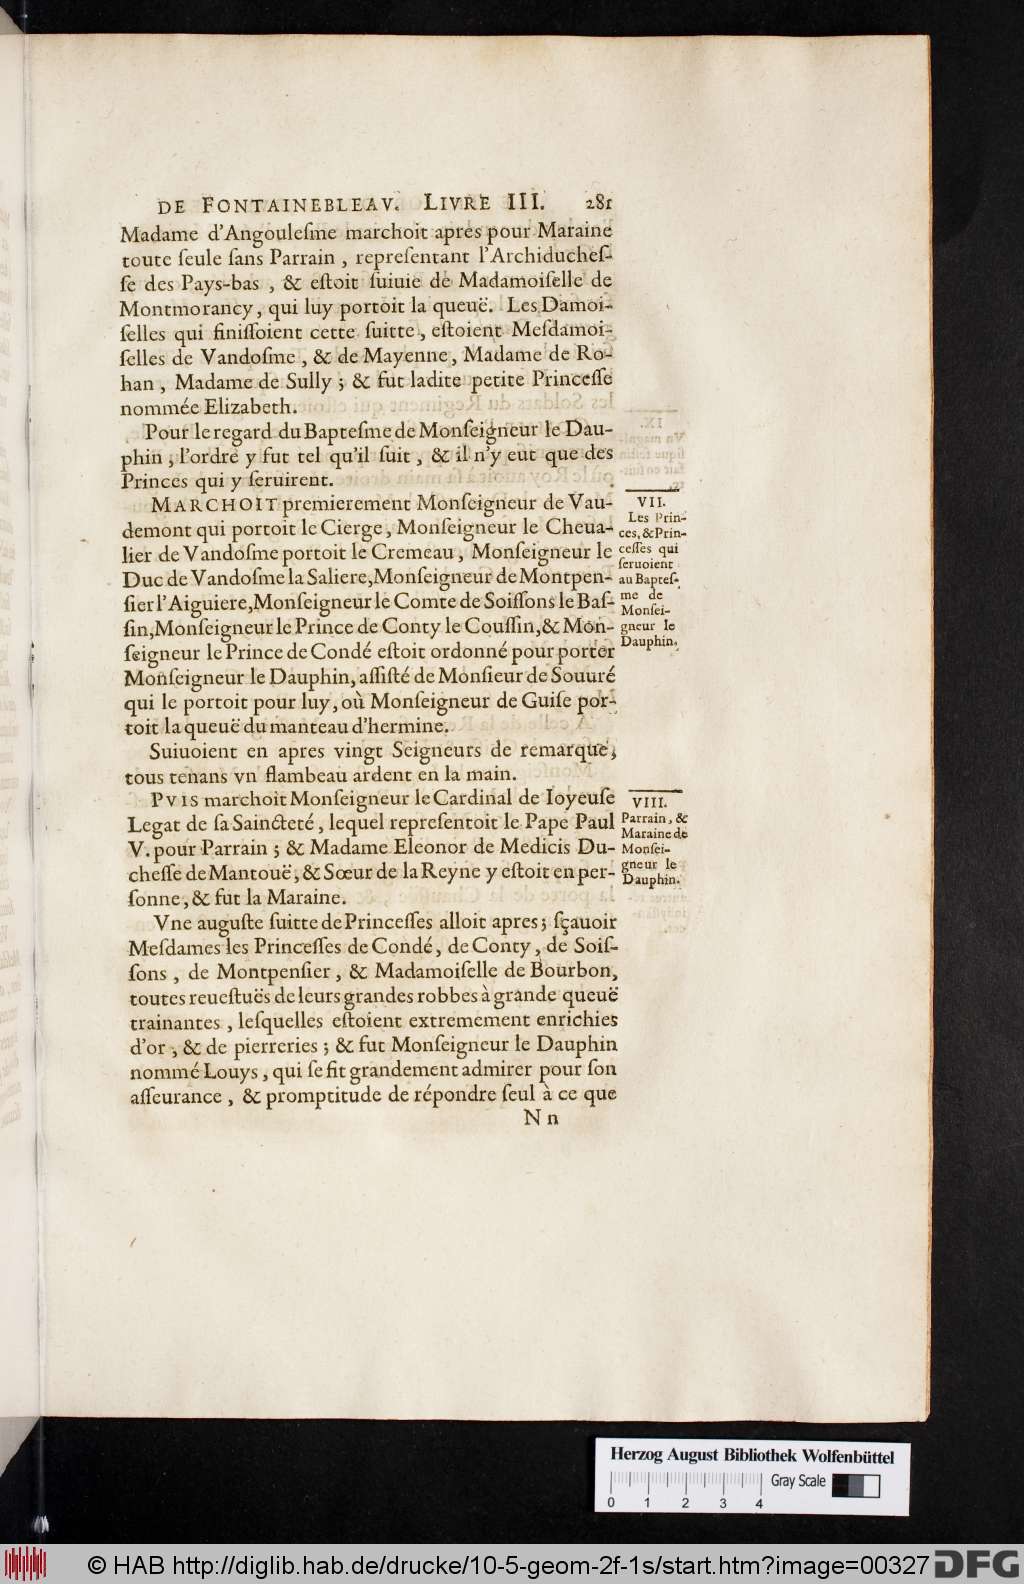 DE FONTAINEBLEAV. LIVRE III. 281
Madame d'Angoulesme marchoit apres pour Maraine
toute ſeule ſans Parrain, repreſentant l'Archiducheſ-
ſe des Pays-bas, & eſtoit ſuiuie de Madamoiſelle de
Montmorancy, qui luy portoit la queuë. Les Damoi-
ſelles qui finiſſoient cette ſuitte, eſtoient Meſdamoi-
ſelles de Vandoſme, & de Mayenne, Madame de Ro-
han, Madame de Sully; & fut ladite petite Princeſſe
nommée Elizabeth.
Pour le regard du Bapteſme de Monſeigneur le Dau-
phin, l'ordre y fut tel qu'il ſuit, & il n'y eut que des
Princes qui y ſeruirent.
MARCHOIT premierement Monſeigneur de Vau-
demont qui portoit le Cierge, Monſeigneur le Cheua-
lier de Vandoſme portoit le Cremeau, Monſeigneur le
Duc de Vandoſme la Saliere, Monſeigneur de Montpen-
ſier l'Aiguiere, Monſeigneur le Comte de Soiſſons le Baſ-
ſin, Monſeigneur le Prince de Conty le Couſſin, & Mon-
ſeigneur le Prince de Condé eſtoit ordonné pour porter
Monſeigneur le Dauphin, aſſiſté de Monſieur de Souuré
qui le portoit pour luy, où Monſeigneur de Guiſe por-
toit la queuë du manteau d'hermine.
VII.
Les Prin-
ces, & Prin-
ceſſes qui
ſeruoient
au Bapteſ-
me de
Monſei-
gneur le
Dauphin.
Suiuoient en apres vingt Seigneurs de remarque,
tous tenans vn flambeau ardent en la main.
PVIS marchoit Monſeigneur le Cardinal de Ioyeuſe
Legat de ſa Saincteté, lequel repreſentoit le Pape Paul
V. pour Parrain; & Madame Eleonor de Medicis Du-
cheſſe de Mantouë, & Sœur de la Reyne y eſtoit en per-
ſonne, & fut la Maraine.
VIII.
Parrain, &
Maraine de
Monſei-
gneur le
Dauphin.
Vne auguſte ſuitte de Princeſſes alloit apres; ſçauoir
Meſdames les Princeſſes de Condé, de Conty, de Soiſ-
ſons, de Montpenſier, & Madamoiſelle de Bourbon,
toutes reueſtuës de leurs grandes robbes à grande queuë
trainantes, leſquelles eſtoient extremement enrichies
d'or, & de pierreries; & fut Monſeigneur le Dauphin
nommé Louys, qui ſe fit grandement admirer pour ſon
aſſeurance, & promptitude de répondre ſeul à ce que
N n
Herzog August Bibliothek Wolfenbüttel
Gray Scale
0 1 2 3 4
© HAB http://diglib.hab.de/drucke/10-5-geom-2f-1s/start.htm?image=00327
DFG